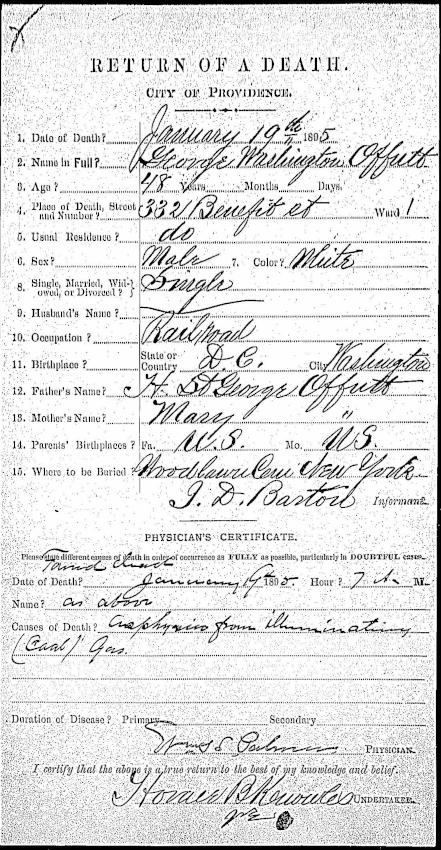 RETURN OF A DEATH.
CITY OF PROVIDENCE.
1. Date of Death? January 19th 1895
2. Name in Full? George Washington Offutt
3. Age? 48 Years Months Days.
4. Place of Death, Street and Number? 332 Benefit st Ward 1
5. Usual Residence? do
6. Sex? Male 7. Color? White
8. Single, Married, Widowed, or Divorced? Single
9. Husband's Name?
10. Occupation? Railroad
11. Birthplace? State or Country D C. City Washington
12. Father's Name? H. St George Offutt
13. Mother's Name? Mary "
14. Parents' Birthplaces? Fa. U.S. Mo. US.
15. Where to be Buried? Woodlawn Cem New York
J. D. Barton Informant.
PHYSICIAN'S CERTIFICATE.
Please state different causes of death in order of occurrence as FULLY as possible, particularly in DOUBTFUL cases.
Found dead
Date of Death? January 19 1895 Hour? 7 A. M.
Name? as above
Causes of Death? Asphyxia from illuminating
(Coal) Gas.
Duration of Disease? Primary Secondary
PHYSICIAN.
I certify that the above is a true return to the best of my knowledge and belief.
Horace B. Knowles UNDERTAKER.